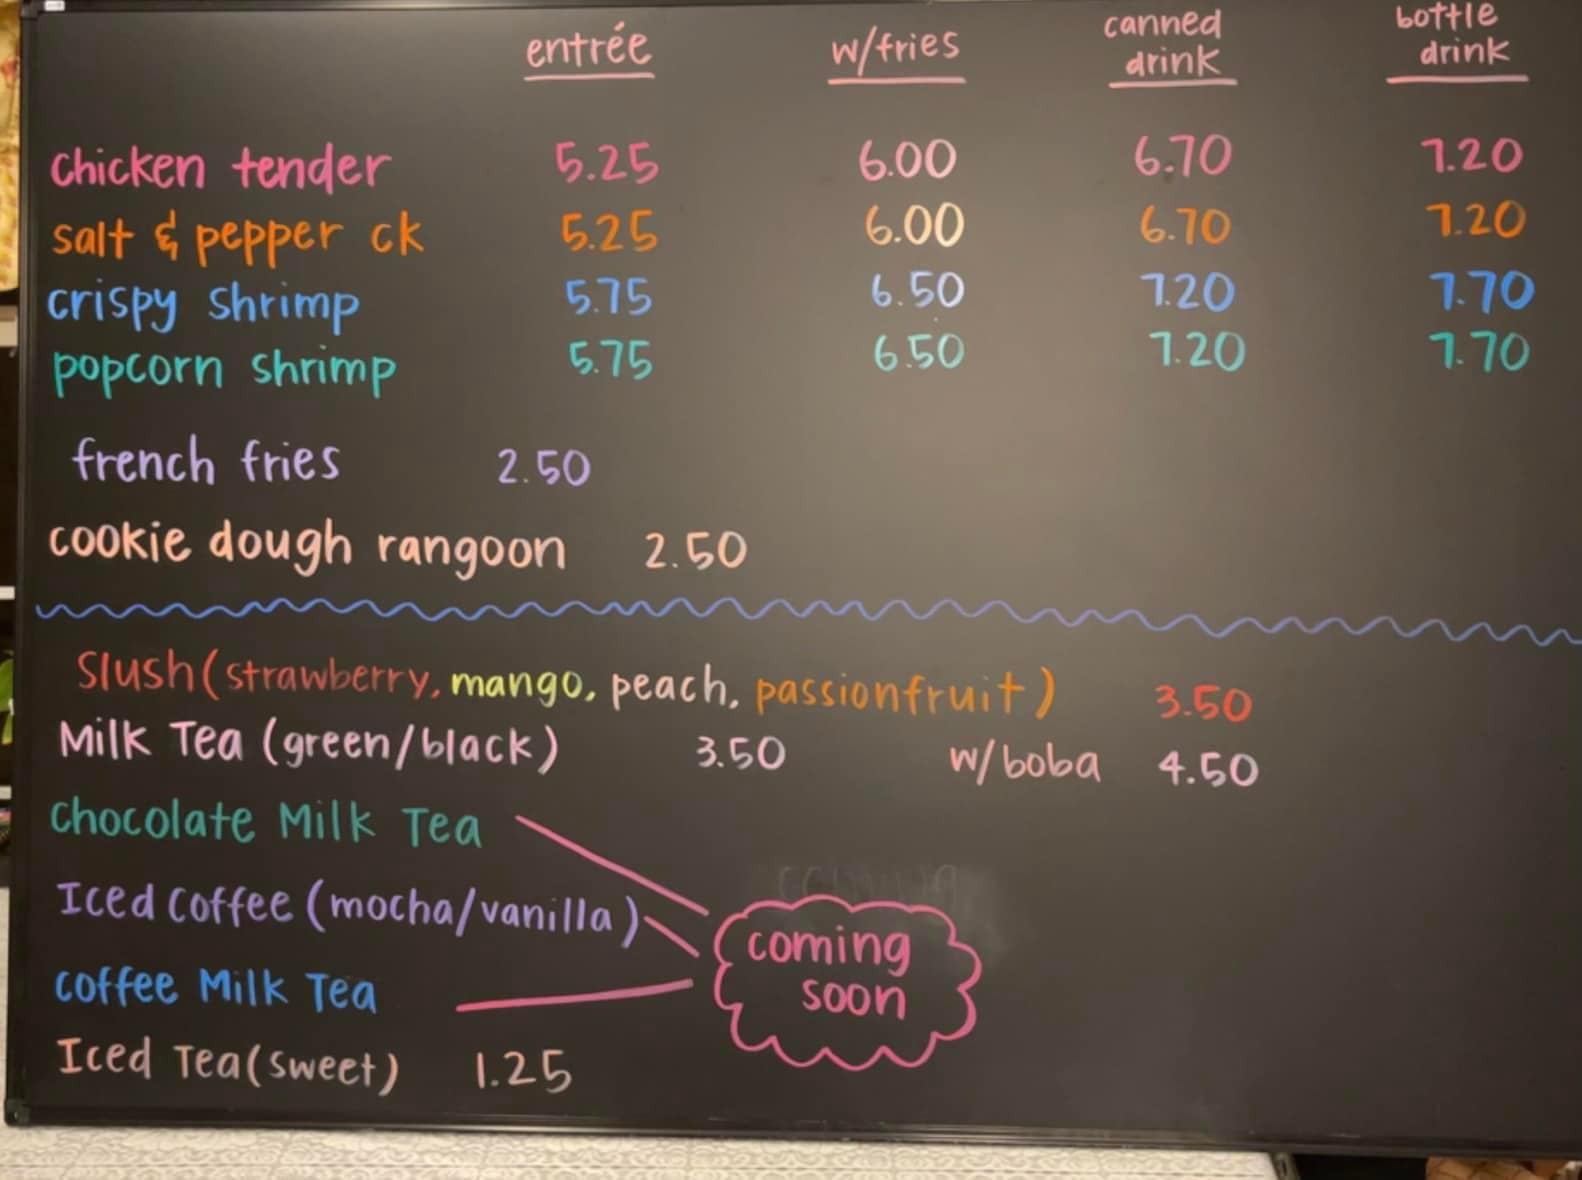 entrée w/fries canned drink bottle drink
chicken tender 5.25 6.00 6.70 7.20
salt & pepper ck 5.25 6.00 6.70 7.20
crispy shrimp 5.75 6.50 7.20 7.70
popcorn shrimp 5.75 6.50 7.20 7.70
french fries 2.50
cookie dough rangoon 2.50
Slush (strawberry, mango, peach, passionfruit) 3.50
Milk Tea (green/black) 3.50 w/boba 4.50
Chocolate Milk Tea
Iced Coffee (mocha/vanilla)
coming
soon
Coffee Milk Tea
Iced Tea (sweet) 1.25